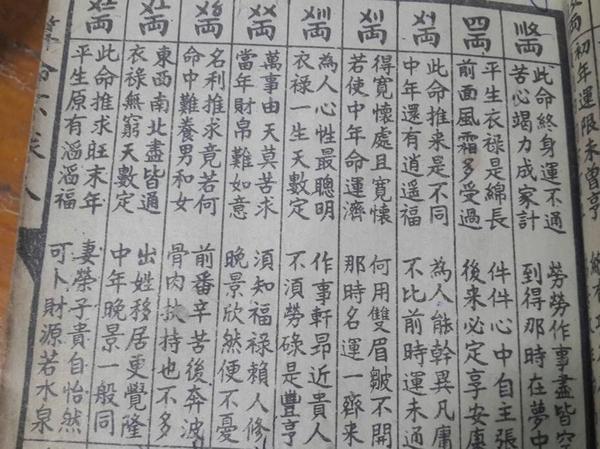 初年運限未曾亨
此命終身運不通 勞勞作事盡皆空
苦心竭力成家計 到得那時在夢中
四兩
平生衣祿是綿長 件件心中自主張
前面風霜多受過 後來必定享安康
〤〡兩
此命推來是不同 為人能幹異凡庸
中年還有逍遥福 不比前時運未通
〤〢兩
得寬懷處且寬懷 何用雙眉皺不開
若使中年命運濟 那時名運一齊來
〤〣兩
為人心性最聰明 作事軒昂近貴人
衣祿一生天數定 不須勞碌是豐亨
〤〤兩
萬事由天莫苦求 須知福祿賴人修
當年財帛難如意 晚景欣然便不憂
〤〥兩
名利推求竟若何 前番辛苦後奔波
命中難養男和女 骨肉扶持也不多
〤〦兩
東西南北盡皆通 出姓移居更覺隆
衣祿無窮天數定 中年晚景一般同
〤〧兩
此命推求旺末年 妻榮子貴自怡然
平生原有滔滔福 可卜財源若水泉